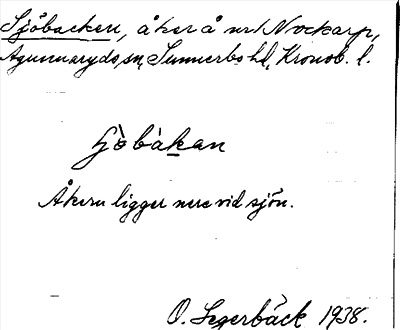 Sjöbacken, åker å nr 1 Nockarp,
Agunnaryds sn, Sunnerbo hd, Kronob. l.
ʃö̀bàkan
Åkern ligger nere vid sjön.
O. Segerbäck 1938.